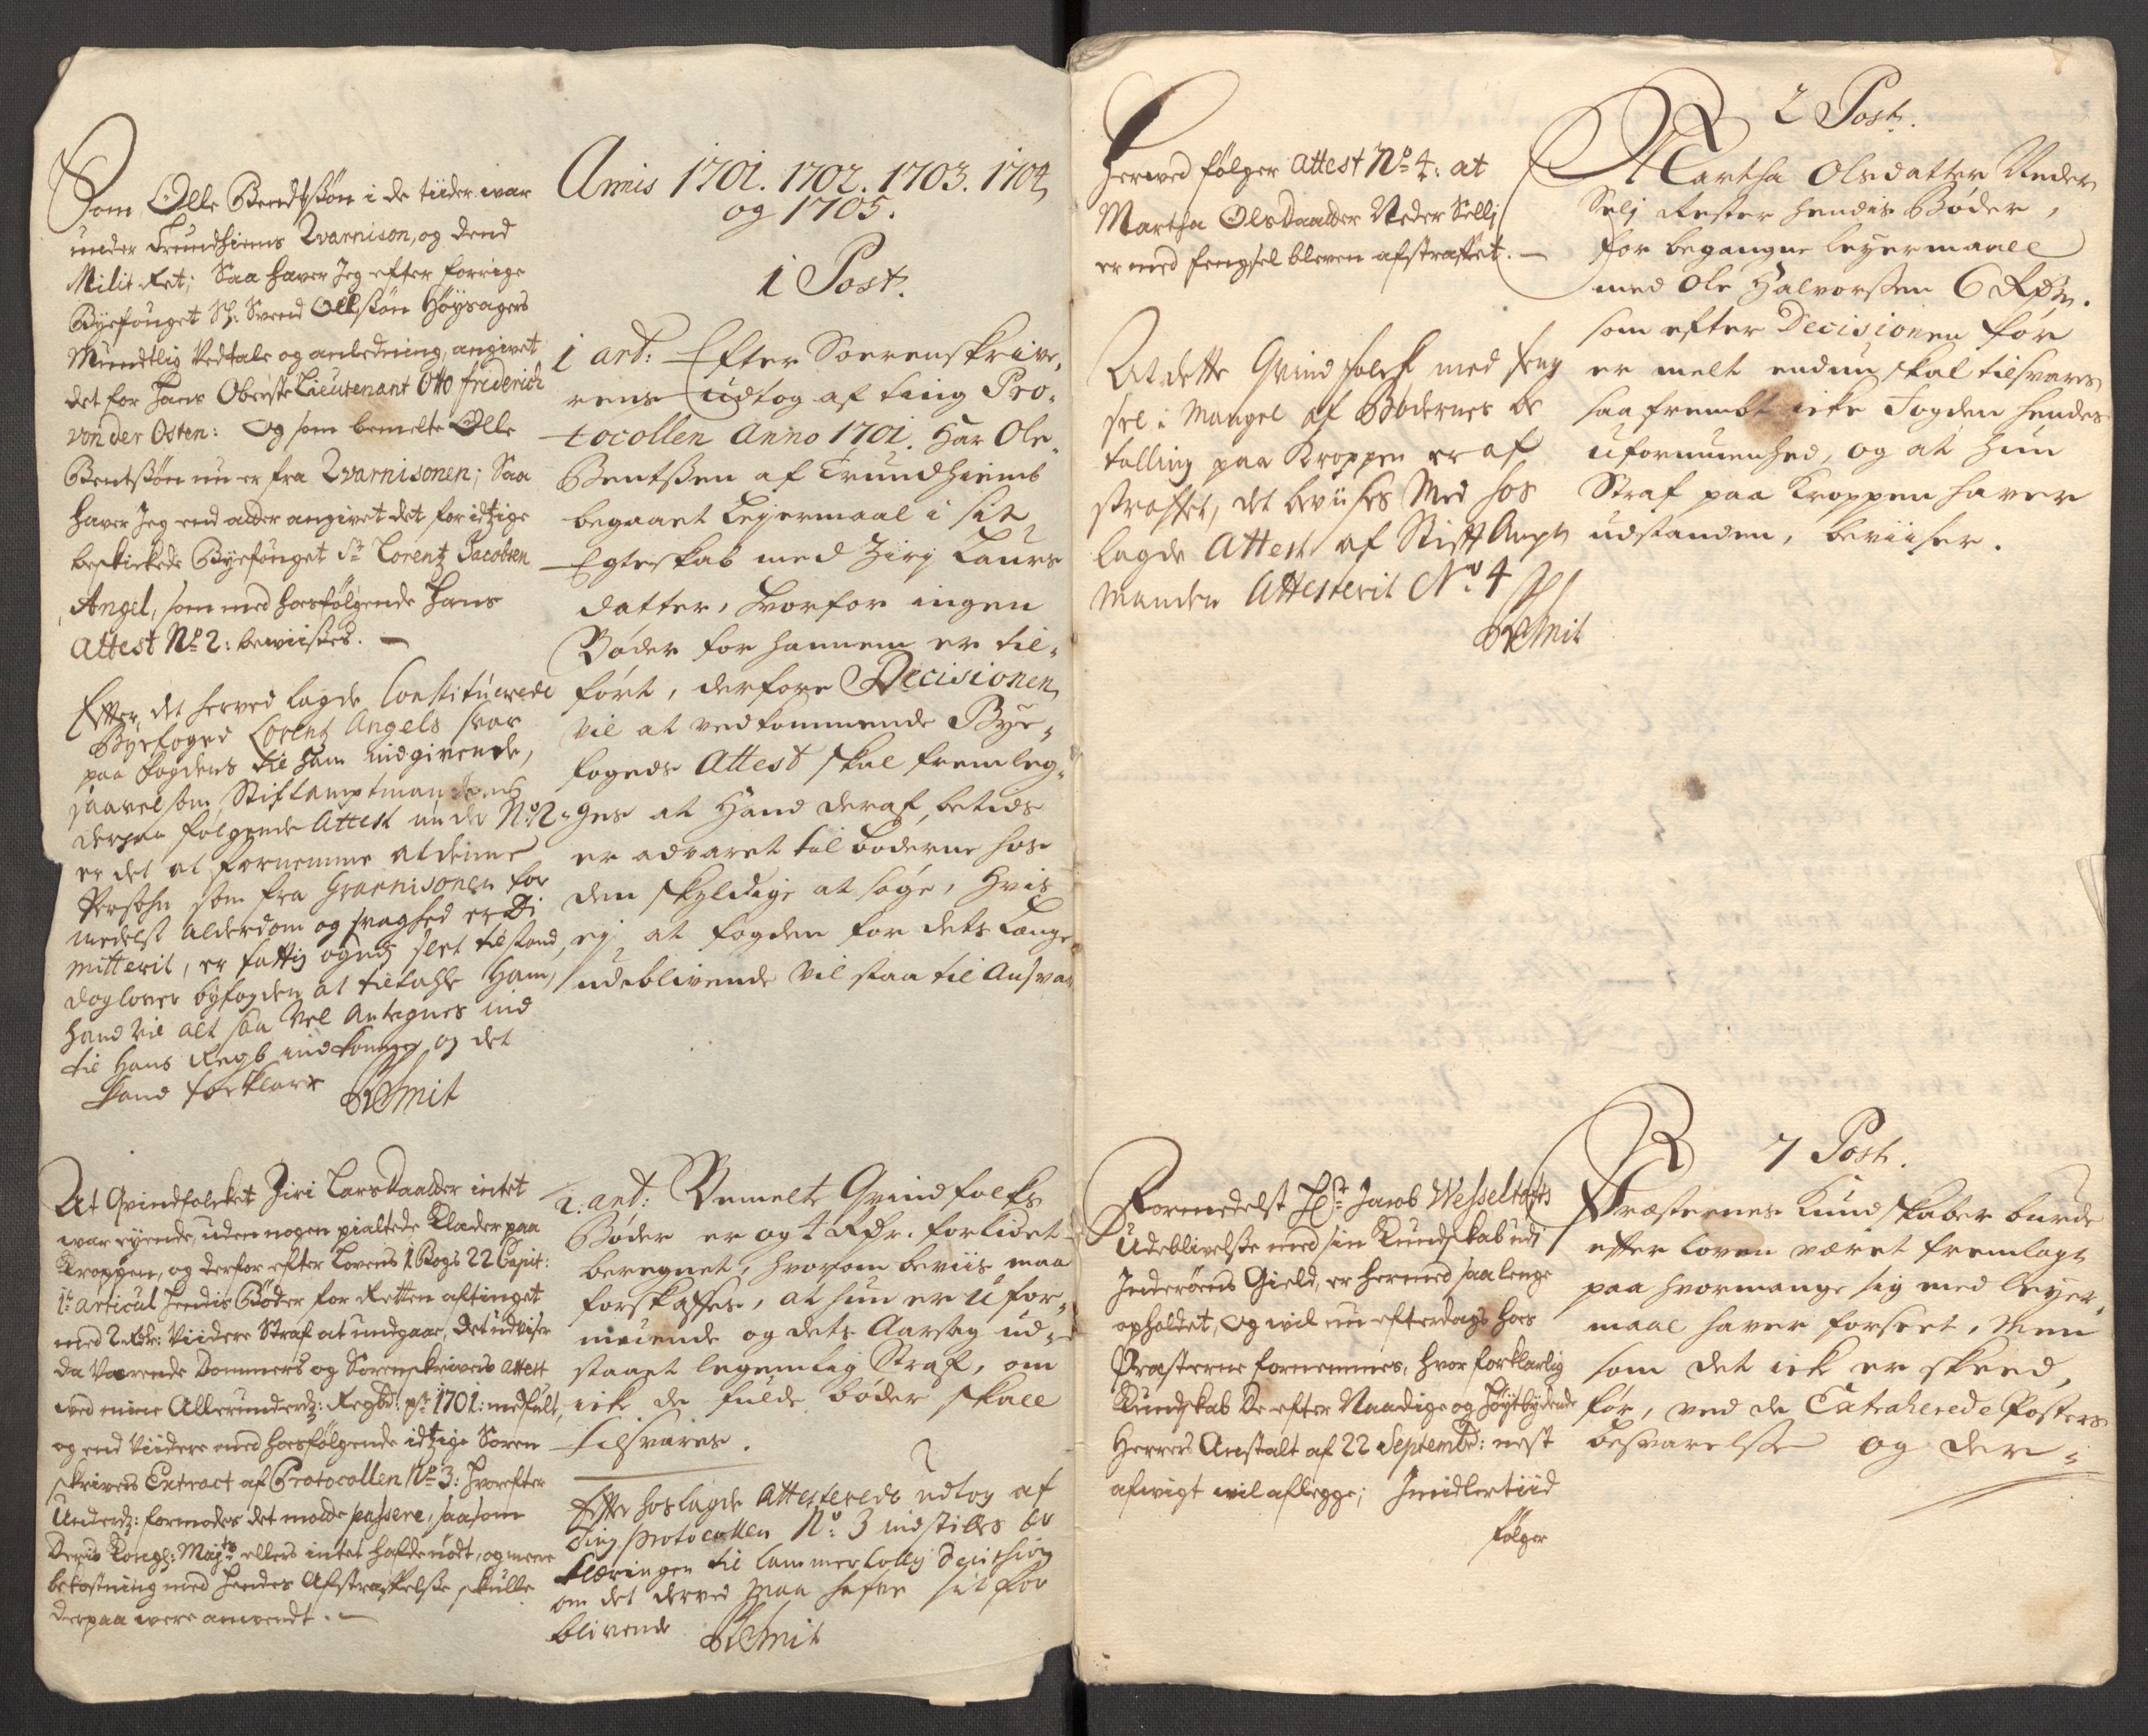 Som Olle Bendtßøn i de tiider war
under Trundhiems Qvarnison, og dend
Milit Ret; Saa haver Jeg efter forrige
Byefouget Sl: Svend Ollßøn Høysagers
Mündtlig Vedtale og anledning, angivet
det for Hans Oberste Lieutenant Otto friderich
von der Osten: Og som bemelte Olle
Bentßøn nu er fra Qvarnisonen; Saa
haver Jeg end atter angivet det for idtzige
beskickede Byefouget Sr Lorentz Jacobsen
Angel, som med hoesfølgende Hans
Attest No 2: bewiißes. —
Efter det herved lagde Constituerede
Byefoged Lorentz Angels svar
paa fogdens til ham indgivende,
saavelsom Stiftamptmandens
derpaa følgende Attest under No 2
er det at fornemme at denne
Persohn som fra Grarnisonen for
medelst alderdom og svaghed er Di
mitterit, er fattig og udj slet tilstand,
dog lover byfogden at tiltahle Ham,
hand vil alt saa vel Antegnes ind
til Hans Regb indkommer og det
kand forklare
Schmit
At Qvindfolcket Ziri LarsDaatter intet
war eyende, uden nogen pialtede Klæder paa
Kroppen, og derfor efter Lovens 1 Bogs 22 Capit:
1te articul hendis Bøder for Retten aftinget
med 2 Rdr: Viidere Straf at undgaae, det udviser
da Værende Dommers og Sorenskrivers attest
ved mine Allerunderdz: Regb: pr 1701: medfult,
og end Viidere med hoesfølgende idtzige Soren
skrivers Extract af Protocollen No 3: hvorefter
Underdz: formodes det motte passere, saasom
Deris Kongl: Mayts ellers intet hafde nødt, og mere
bekostning med hendes Afstraffelse skulle
derpaa were anvendt. —
Annis 1701. 1702. 1703. 1704
og 1705.
1 Post.
1 ant: Efter Sorenskrive„
rens udtog af ting Pro„
tocollen Anno 1701. Har Ole
Bentßen af Trundhiemb
begaaet Leyermaal i sit
Egteskab med Zirj Laurs
datter, hvorfor ingen
Bøder for hannem er til„
ført, derfore Decisionen
vil at vedkommende Bye„
fogeds Attest skal fremleg„
ges at Hand deraf betids
er advaret til bøderne hos
den skyldige at søge, hvis
ej, at fogden for dets Lange
udeblivende vil staa til Ansvar
2. ant: Bemelte Qvindfolks
Bøder er og 4 Rdr. for lidet
beregnet, hvorom beviis maa
forskaffes, at hun er ufor„
muende og dets Aarsag ud„
staaet legemlig Straf, om
ick de fulde bøder skall
tilsvares.
Efter hoslagde Attesterede udtog af
ting protocollen No: 3 indstilles er
klæringen til Cammer Collej Decision
om det derved maa hafve sit for
blivende
Schmit
Herved følger attest No 4: at
Martha OlsDaatter Neder Sellj
er med fengsel bleven afstraffet. —
At dette Qvindfolck med feng
sel i Mangel af Bødernes be
talling paa Kroppen er af
straffet, det beviises Med hos
lagde Attest af Stift Ampt
manden Attesterit No: 4
Schmit
2 Post.
Martha Olsdatter Neder
Selj Rester hendis Bøder,
for begangne leyermaall
med Ole Halvorßen 6 Rdr.
som efter Decisionen før
er melt endnu skal tilsvares
saa fremdt icke Fogden hendes
uformuenhed, og at hun
Straf paa Kroppen haver
udstanden, beviiser.
Formedelst Hr Jacob Wesseltofts
Udeblivelse med sin Kundskab udj
Inderøens Gield, er hermed saa lenge
opholdet, og wil nu efterdags hoes
Præsterne fornemmes, hvor forklarlig
Kundskab De efter Naadige og Høytbydende
Herrers Anstalt af 22 Septembr: nest
afvigt wil aflegge; Imidlertiid
følger
7 Post.
Præsternes Kundskaber burde
efter loven været fremlagt
paa hvormange sig med leyer„
maal haver forseet, Men
som det ick er skeed,
før, ved de Extraherede Posters
besvarelse og der„